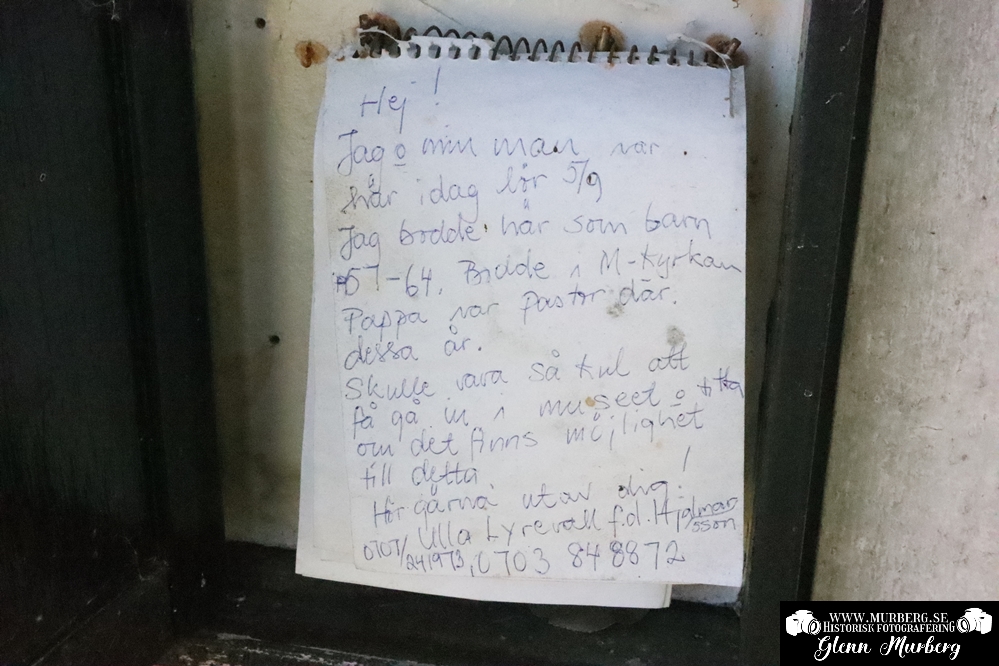 Hej!
Jag o min man var
här idag lör 5/9
Jag bodde här som barn
57-64. Bodde i M-Kyrkan
Pappa var pastor där.
dessa år.
Skulle vara så kul att
få gå in i museet o titta
om det finns möjlighet
till detta
Hör gärna utav dig!
Ulla Lyrevall f.d. Hjalmarsson
0707/241973, 0703 848872
WWW.MURBERG.SE
HISTORISK FOTOGRAFERING
Glenn Murberg